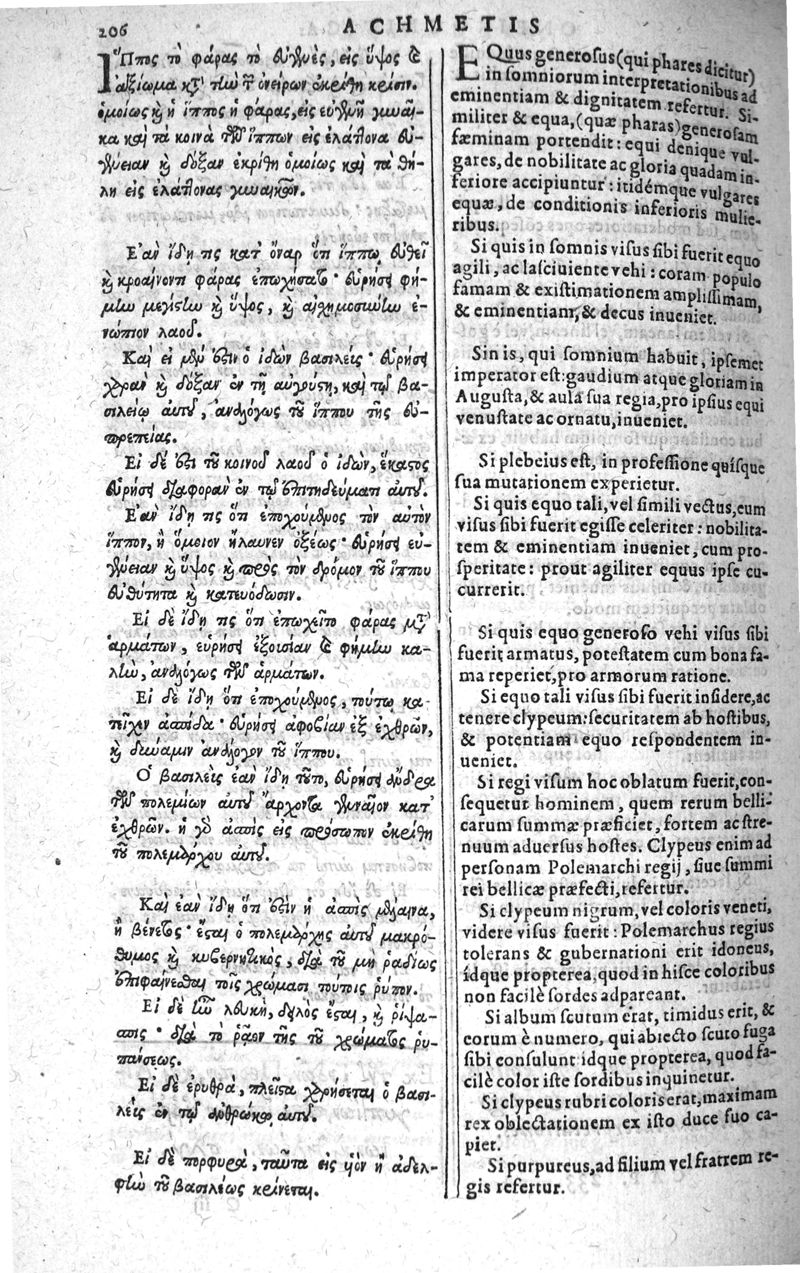 206
ACHMETIS
Ἵππος τὸ φάρας τὸ εὐγενὲς, εἰς ὕψος καὶ
ἀξίωμα κατὰ τὴν τῶν ὀνείρων ἐκρίθη κρίσιν.
ὁμοίως καὶ ἡ ἵππος ἡ φάρας, εἰς εὐγενῆ γυναῖ-
κα καὶ τὰ κοινὰ τῶν ἵππων εἰς ἐλάττονα εὐ-
γένειαν καὶ δόξαν ἐκρίθη ὁμοίως καὶ τὰ θή-
λη εἰς ἐλάττονας γυναικῶν.
Ἐὰν ἴδη τις κατ' ὄναρ ὅτι ἵππῳ εὐθεῖ
καὶ κροαίνοντι φάρας ἐπωχήσατο· εὑρήσει φή-
μην μεγίστην καὶ ὕψος, καὶ αὐχημοσύνην ἐ-
νώπιον λαοῦ.
Καὶ εἰ μέν ἐστιν ὁ ἰδὼν βασιλεὺς· εὑρήσει
χαρὰν καὶ δόξαν ἐν τῇ αὐγούστῃ, καὶ τῷ βα-
σιλείῳ αὐτοῦ, ἀναλόγως τοῦ ἵππου τῆς εὐ-
πρεπείας.
Εἰ δέ ἐστι τοῦ κοινοῦ λαοῦ ὁ ἰδὼν, ἕκαστος
εὑρήσει διαφορὰν ἐν τῷ ἐπιτηδεύματι αὐτοῦ.
Ἐὰν ἴδη τις ὅτι ἐποχούμενος τὸν αὐτὸν
ἵππον, ἢ ὅμοιον ἤλαυνεν ὀξέως· εὑρήσει εὐ-
γένειαν καὶ ὕψος καὶ πρὸς τὸν δρόμον τοῦ ἵππου
εὐθύτητα καὶ κατευόδωσιν.
Εἰ δὲ ἴδη τις ὅτι ἐπωχεῖτο φάρας μετὰ
ἁρμάτων, εὑρήσει ἐξουσίαν καὶ φήμην κα-
λὴν, ἀναλόγως τῶν ἁρμάτων.
Εἰ δὲ ἴδη ὅτι ἐποχούμενος, τούτῳ κα-
τεῖχεν ἀσπίδα· εὑρήσει ἀφοβίαν ἐξ ἐχθρῶν,
καὶ δύναμιν ἀνάλογον τοῦ ἵππου.
Ὁ βασιλεὺς ἐὰν ἴδη τοῦτο, εὑρήσει ἄνδρα
τῶν πολεμίων αὐτοῦ ἄρχοντα γενναῖον κατ'
ἐχθρῶν. ἡ γὰρ ἀσπὶς εἰς πρόσωπον ἐκρίθη
τοῦ πολεμάρχου αὐτοῦ.
Καὶ ἐὰν ἴδη ὅτι ἐστὶν ἡ ἀσπὶς μέλαινα,
ἢ βένετος· ἔσται ὁ πολεμάρχης αὐτοῦ μακρό-
θυμος καὶ κυβερνητικὸς, διὰ τοῦ μὴ ῥαδίως
ἐπιφαίνεσθαι τοῖς χρώμασι τούτοις ῥύπον.
Εἰ δὲ ἦν λευκὴ, δειλὸς ἔσται, καὶ ῥίψα-
σπις· διὰ τὸ ῥᾷον τῆς τοῦ χρώματος ῥυ-
πάνσεως.
Εἰ δὲ ἐρυθρὰ, πλεῖστα χαρήσεται ὁ βασι-
λεὺς ἐν τῷ ἀνθρώπῳ αὐτοῦ.
Εἰ δὲ πορφυρᾶ, ταῦτα εἰς υἱὸν ἢ ἀδελ-
φὸν τοῦ βασιλέως κρίνεται.
EQuus generosus (qui phares dicitur)
in somniorum interpretationibus ad
eminentiam & dignitatem refertur. Si-
militer & equa, (quæ pharas) generosam
fæminam portendit: equi denique vul-
gares, de nobilitate ac gloria quadam in-
feriore accipiuntur: itidémque vulgares
equæ, de conditionis inferioris mulie-
ribus.
Si quis in somnis visus sibi fuerit equo
agili, ac lasciuiente vehi: coram populo
famam & existimationem amplissimam,
& eminentiam, & decus inueniet.
Sin is, qui somnium habuit, ipsemet
imperator est: gaudium atque gloriam in
Augusta, & aula sua regia, pro ipsius equi
venustate ac ornatu, inueniet.
Si plebeius est, in professione quisque
sua mutationem experietur.
Si quis equo tali, vel simili vectus, eum
visus sibi fuerit egisse celeriter: nobilita-
tem & eminentiam inueniet, cum pro-
speritate: prout agiliter equus ipse cu-
currerit.
Si quis equo generoso vehi visus sibi
fuerit armatus, potestatem cum bona fa-
ma reperiet, pro armorum ratione.
Si equo tali visus sibi fuerit insidere, ac
tenere clypeum: securitatem ab hostibus,
& potentiam equo respondentem in-
ueniet.
Si regi visum hoc oblatum fuerit, con-
sequetur hominem, quem rerum belli-
carum summæ præficiet, fortem ac stre-
nuum aduersus hostes. Clypeus enim ad
personam Polemarchi regij, siue summi
rei bellicæ præfecti, refertur.
Si clypeum nigrum, vel coloris veneti,
videre visus fuerit: Polemarchus regius
tolerans & gubernationi erit idoneus,
idque propterea, quod in hisce coloribus
non facilè sordes adpareant.
Si album scutum erat, timidus erit, &
eorum è numero, qui abiecto scuto fuga
sibi consulunt idque propterea, quod fa-
cilè color iste sordibus inquinetur.
Si clypeus rubri coloris erat, maximam
rex oblectationem ex isto duce suo ca-
piet.
Si purpureus, ad filium vel fratrem re-
gis refertur.